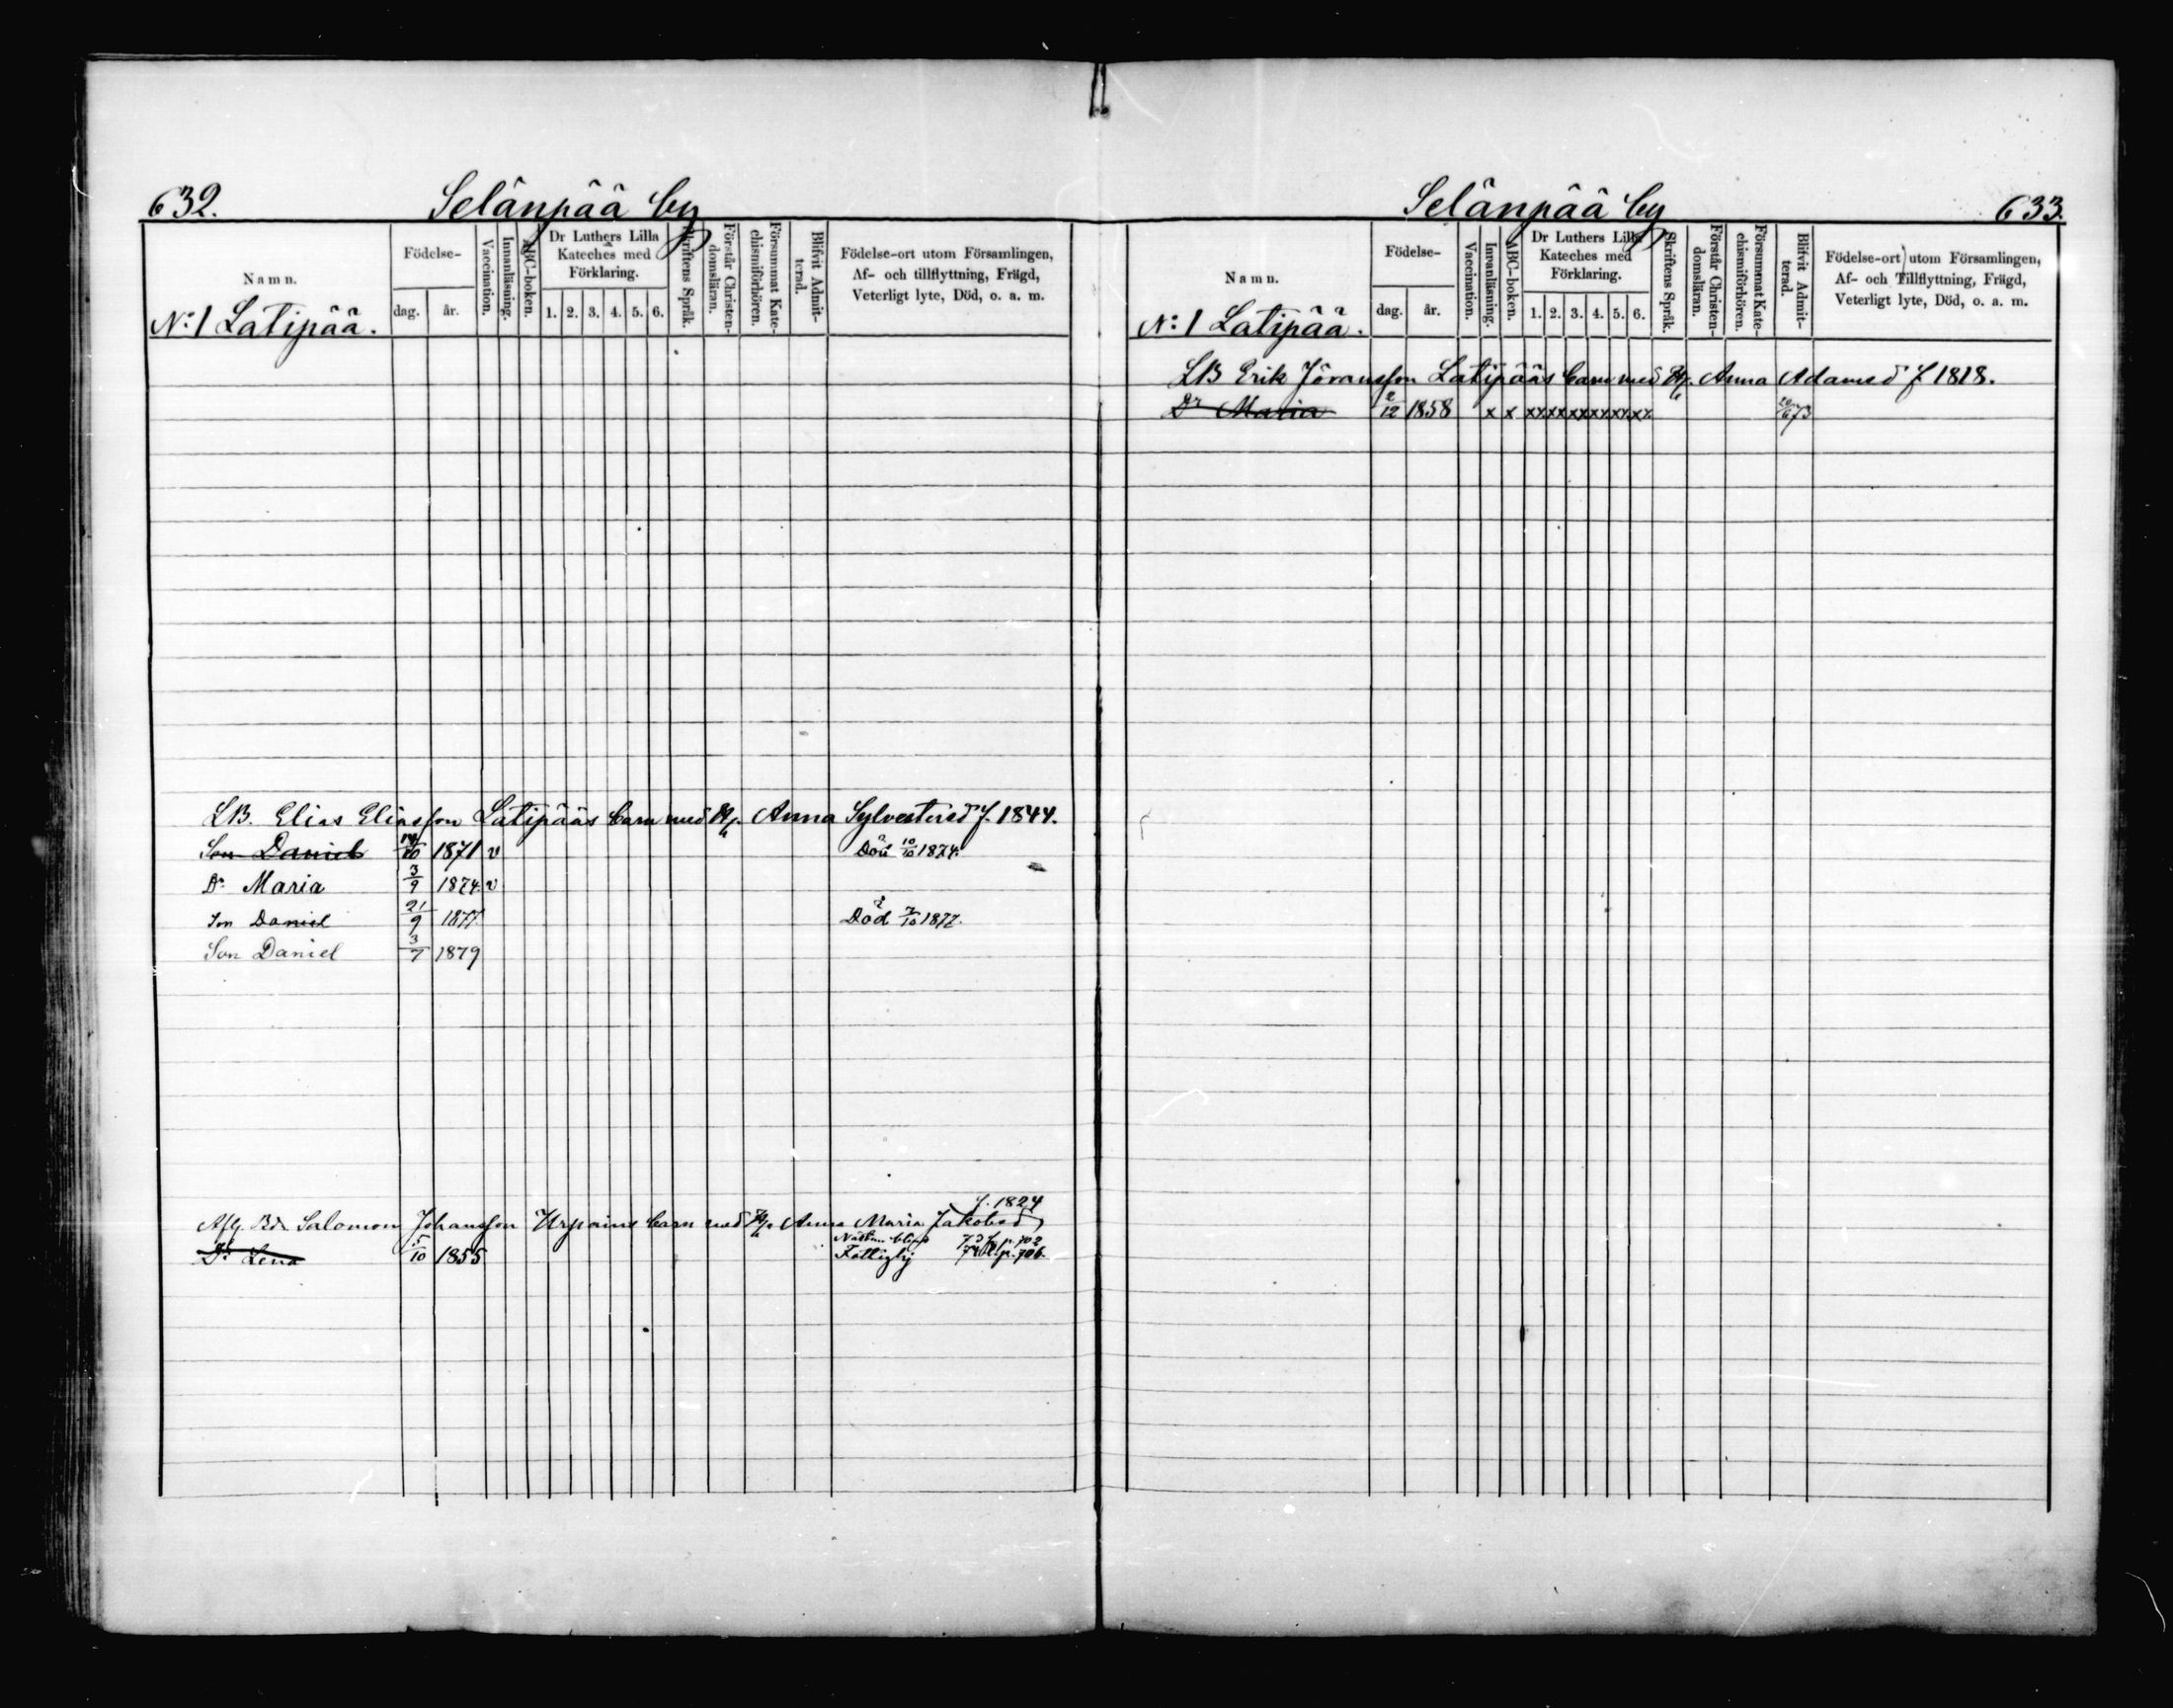 632. Selänpää by
Namn. Födelse- dag. år. Vaccination. Innanläsning. ABC-boken. Dr Luthers Lilla Kateches med Förklaring. 1. 2. 3. 4. 5. 6. Skriftens Språk. Förstår Christendomsläran. Försummat Katechismiförhören. Blifvit Admitterad. Födelse-ort utom Församlingen, Af- och tillflyttning, Frägd, Veterligt lyte, Död, o. a. m.
No: 1 Latipää.
LB. Elias Eliasson Latipääs barn med H. Anna Sylvestersd f. 1844.
Son Daniel 14/10 1871 v Död 10/10 1874.
Dr Maria 3/9 1874. v
Son Daniel 21/9 1877. Död 7/10 1877.
Son Daniel 3/7 1879
f. 1824
Afg. Bd. Salomon Johansson Urpains barn med H. Anna Maria Jakobsd
p. 702
Dr Lena 5/10 1855 Fattighj p. 706.
Selänpää by 633.
Namn. Födelse- dag. år. Vaccination. Innanläsning. ABC-boken. Dr Luthers Lilla Kateches med Förklaring. 1. 2. 3. 4. 5. 6. Skriftens Språk. Förstår Christendomsläran. Försummat Katechismiförhören. Blifvit Admitterad. Födelse-ort utom Församlingen, Af- och Tillflyttning, Frägd, Veterligt lyte, Död, o. a. m.
No: 1 Latipää.
LB Erik Jöransson Latipääs barn med H. Anna Adamsd f 1818.
Dr Maria 2/12 1858 x x xx xx xx xx xx xx 73